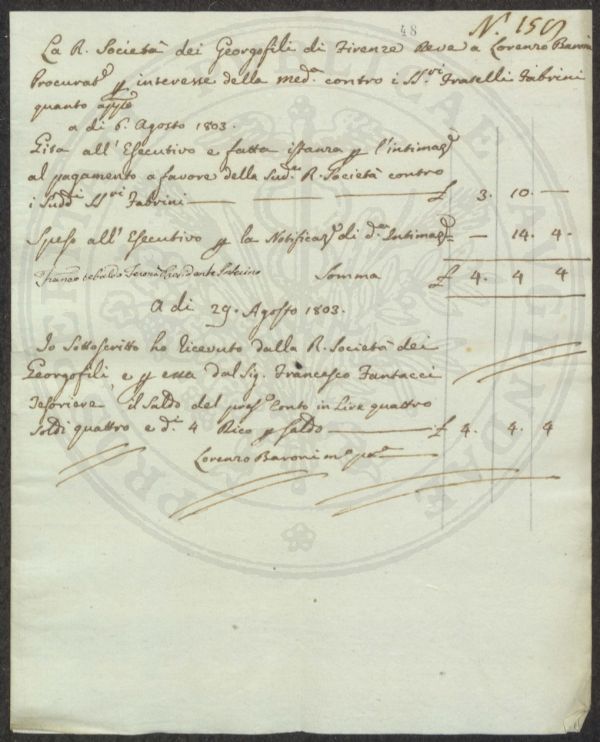 48
N.° 159
La R. Società dei Georgofili di Firenze Deve a Lorenzo Baroni
Procurat.e p interesse della Med.a contro i SS.ri Fratelli Fabrini
quanto app.e
a di 6. Agosto 1803.
Gita all'Esecutivo e fatta istanza p l'intimaz.e
al pagamento a favore della Sud.a R. Società contro
i Sudd.i SS.ri Fabrini — — — — £ 3. 10. —
Speso all'Esecutivo p la Notificaz.e di d.a Intimaz.e — 14. 4.
Somma £ 4. 4 4
A di 29. Agosto 1803.
Io Sottoscritto ho Ricevuto dalla R. Società dei
Georgofili, e p essa dal Sig. Francesco Fantacci
Tesoriere il Saldo del pres.e Conto in Lire quattro
Soldi quattro e d.i 4 Dico p Saldo — £ 4. 4. 4
Lorenzo Baroni m.o pp.a